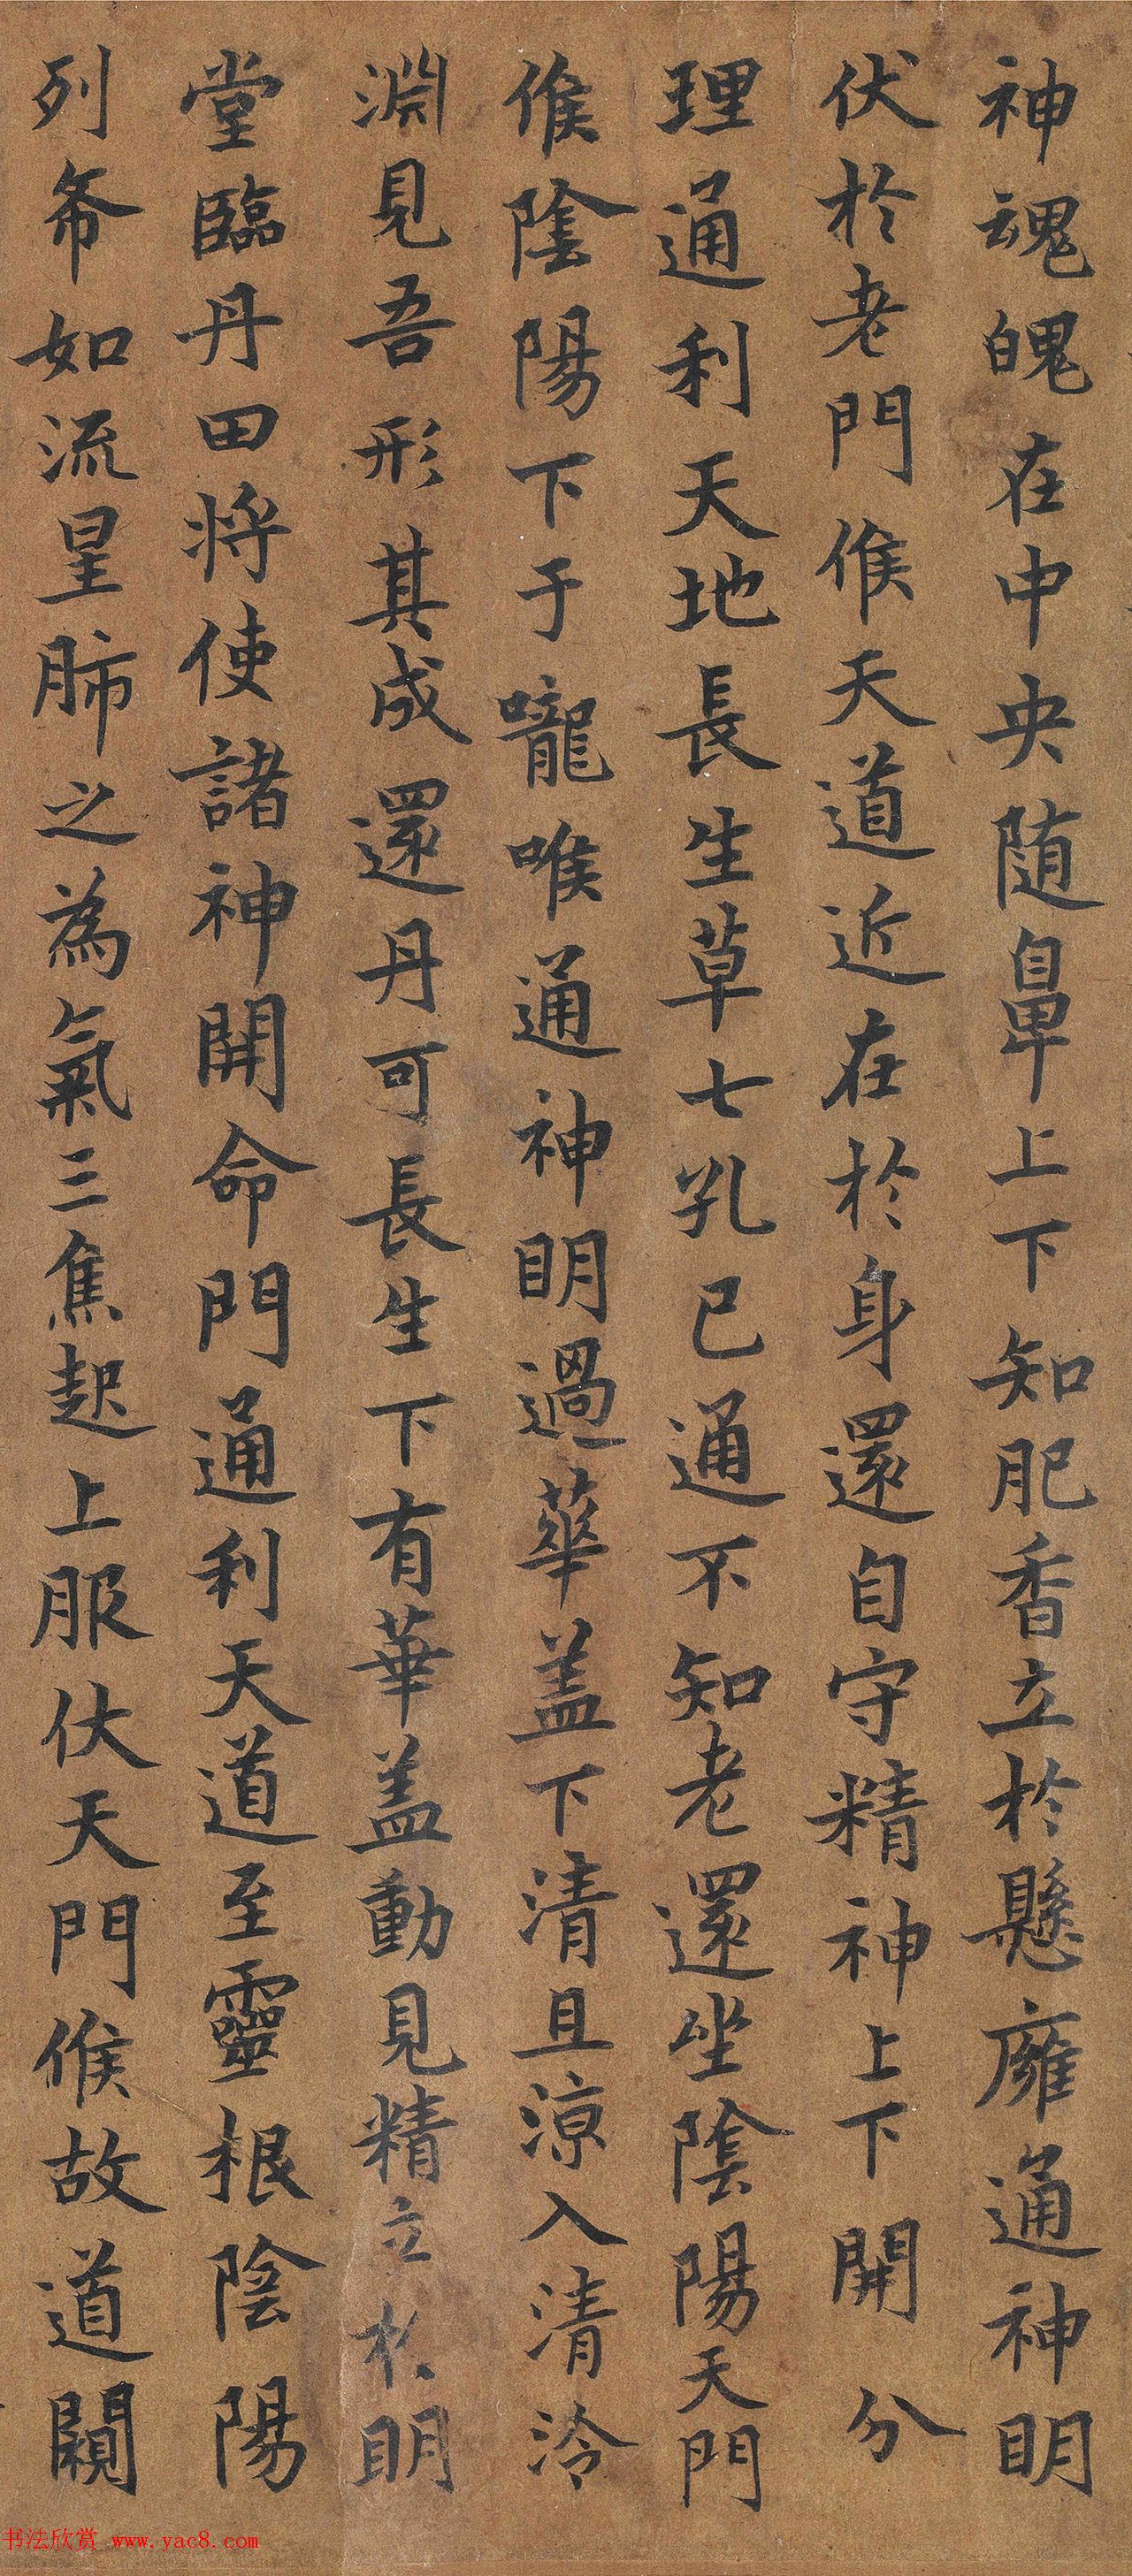 神魂魄在中央随鼻上下知肥香立於懸癰通神明
伏於老門候天道近在於身還自守精神上下開分
理通利天地長生草七孔已通不知老還坐陰陽天門
候陰陽下于嚨喉通神明過華盖下清且涼入清泠
淵見吾形其成還丹可長生下有華盖動見精立於明
堂臨丹田将使諸神開命門通利天道至靈根陰陽
列布如流星肺之為氣三焦起上服伏天門候故道闚
书法欣赏 www.yac8.com